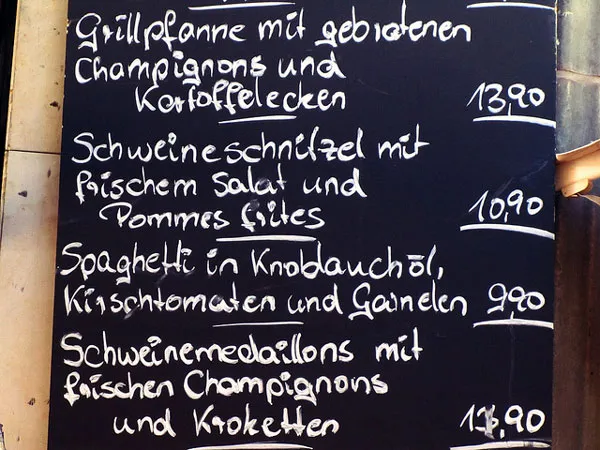 Grillpfanne mit gebratenen
Champignons und
Kartoffelecken 13,90
Schweineschnitzel mit
frischem Salat und
Pommes frites 10,90
Spaghetti in Knoblauchöl,
Kirschtomaten und Garnelen 9,90
Schweinemedaillons mit
frischen Champignons
und Kroketten